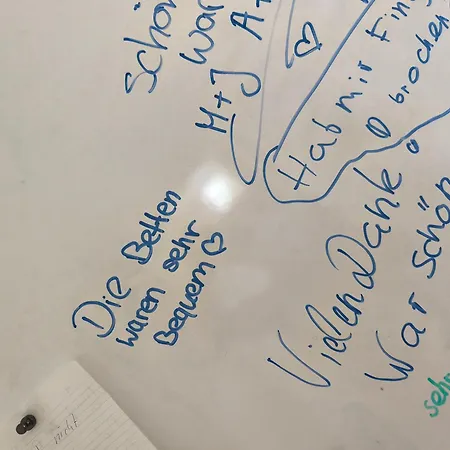 Schön
War
M+J A+
Hab mir Fing
brochen
Die Betten
waren sehr
Bequem♡
Vielen Dank
War schön
sehr
nicht